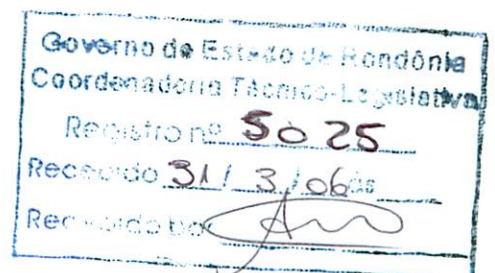 Governo do Estado de Rondônia
Coordenadoria Técnico-Legislativa
Registro nº 5025
Recebido 31/3/06 às
Recebido por